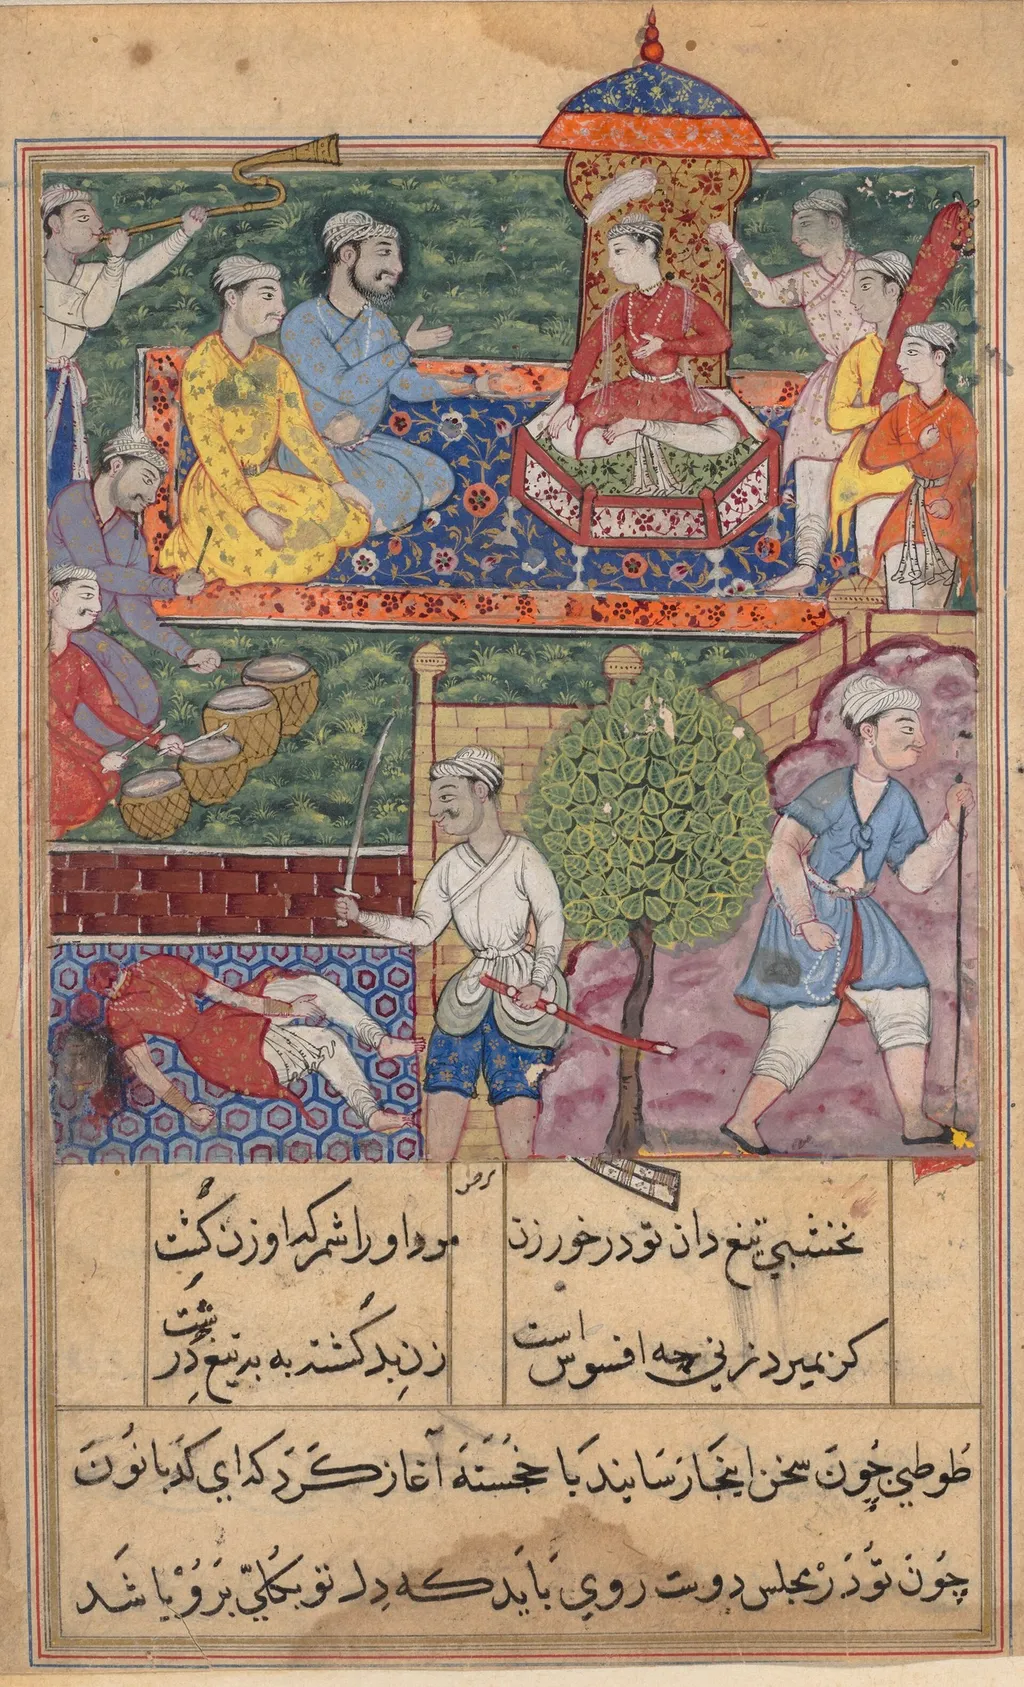 نخشبي تيغ دان تو در خور زن مرد او را شمر که او زن کُشت
کر بميرد زني چه افسوس است زنِ بد کُشته به به تيغ دِرُشت
طُوطي چُونَ سخن اينجَا رَسَانيد بَا خُجَسْتَه آغاز کَرَد که اي کَدبانُونَ
چُونَ تُو دَرْ مجلس دوست روي بَايَد که دِل تو بکُليّ بَرُوْ باشَد